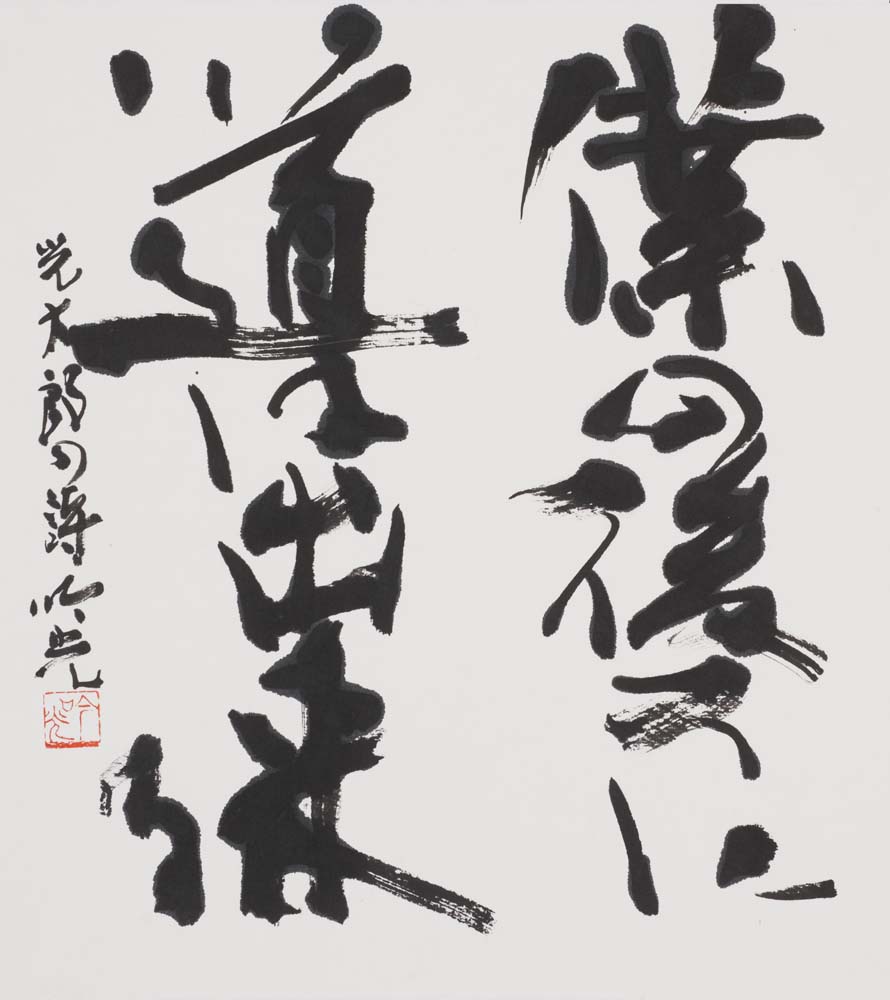 僕の後ろに
道は出来る
光太郎の詩 吟光
吟光